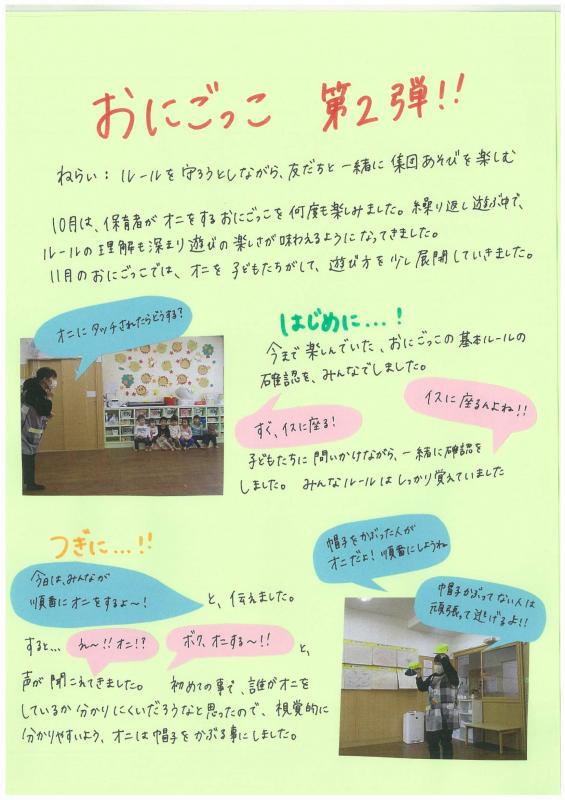 おにごっこ 第2弾!!
ねらい：ルールを守ろうとしながら、友だちと一緒に集団あそびを楽しむ
10月は、保育者がオニをするおにごっこを何度も楽しみました。繰り返し遊ぶ中で、
ルールの理解も深まり遊びの楽しさが味わえるようになってきました。
11月のおにごっこでは、オニを子どもたちがして、遊び方を少し展開していきました。
オニにタッチされたらどうする？
はじめに…！
今まで楽しんでいた、おにごっこの基本ルールの
確認を、みんなでしました。
すぐ、イスに座る！
イスに座るんよね!!
子どもたちに問いかけながら、一緒に確認を
しました。みんなルールはしっかり覚えていました
つぎに…!!
今日は、みんなが
順番にオニをするよ〜！
と、伝えました。
すると… え〜!!オニ!? ボク、オニする〜!! と、
声が聞こえてきました。 初めての事で、誰がオニを
しているか分かりにくいだろうなと思ったので、視覚的に
分かりやすいよう、オニは帽子をかぶる事にしました。
帽子をかぶった人が
オニだよ！順番にしようね
帽子かぶってない人は
頑張って逃げるよ!!